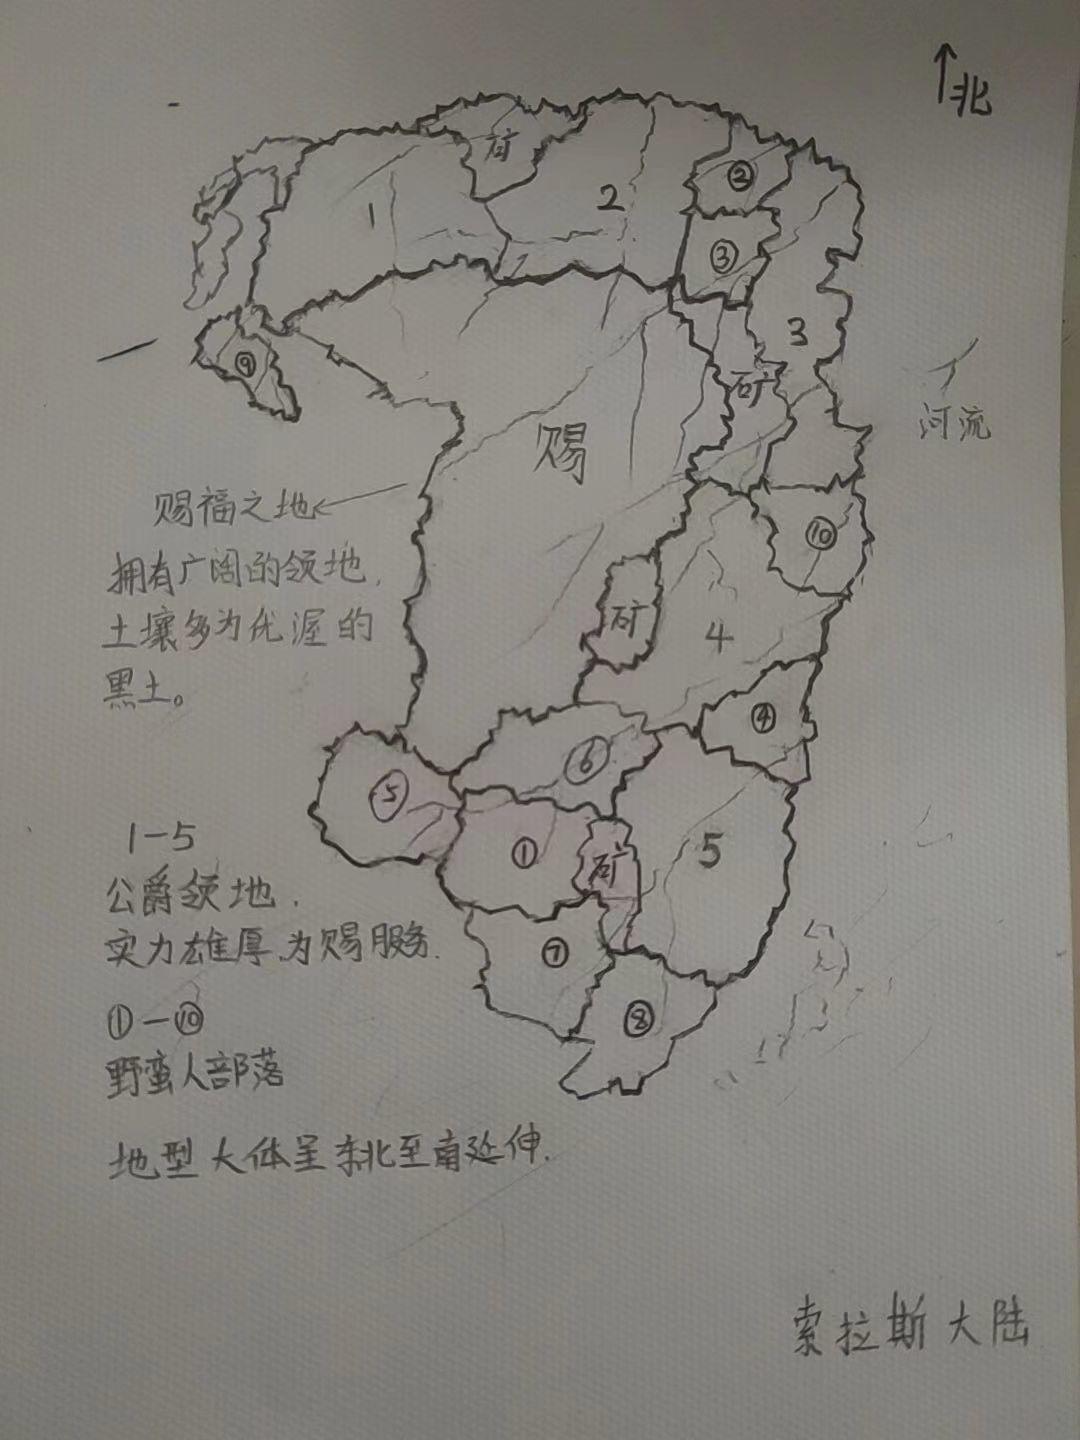 ↑北
矿
②
1
2
③
3
⑨
矿
河流
赐
赐福之地←
⑩
拥有广阔的领地，
土壤多为优渥的
黑土。
矿
4
④
⑥
⑤
1-5
公爵领地．
实力雄厚．为赐服务．
①
矿
5
⑦
⑧
①-⑩
野蛮人部落
地型大体呈东北至南延伸．
索拉斯大陆